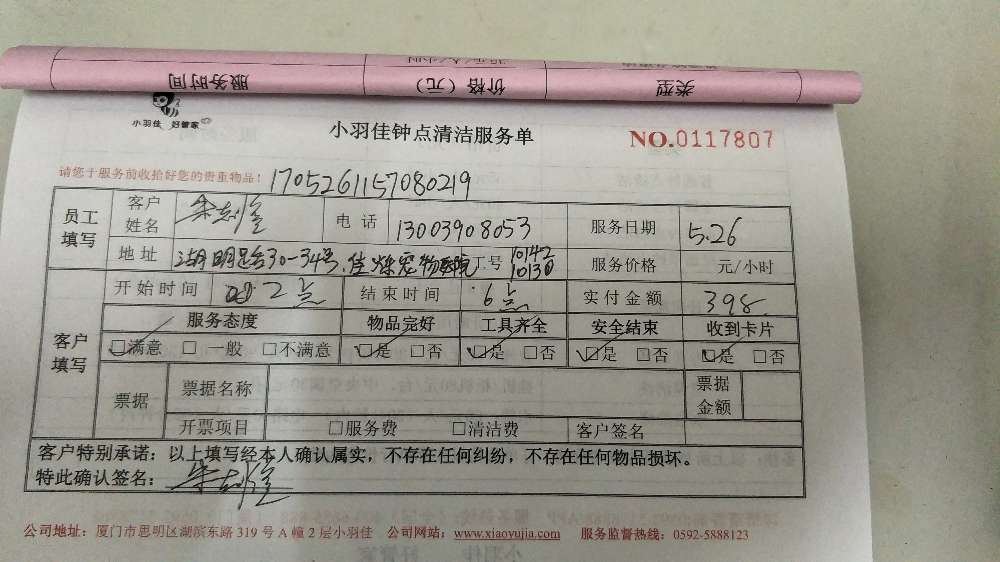 服务时间 价格（元） 类型
小羽佳 好管家
小羽佳钟点清洁服务单 NO.0117807
请您于服务前收拾好您的贵重物品！ 1705261157080219
员工填写 客户姓名 电话 13003908053 服务日期 5.26
地址 湖明路30-34号 佳烁宠物医院 工号 10142 10130 服务价格 元/小时
开始时间 2点 结束时间 6点 实付金额 398
客户填写 服务态度 物品完好 工具齐全 安全结束 收到卡片
☑满意 □一般 □不满意 ☑是 □否 ☑是 □否 ☑是 □否 ☑是 □否
票据 票据名称 票据金额
开票项目 □服务费 □清洁费 客户签名
客户特别承诺：以上填写经本人确认属实，不存在任何纠纷，不存在任何物品损坏。
特此确认签名：
公司地址：厦门市思明区湖滨东路 319 号 A 幢 2 层小羽佳 公司网站：www.xiaoyujia.com 服务监督热线：0592-5888123